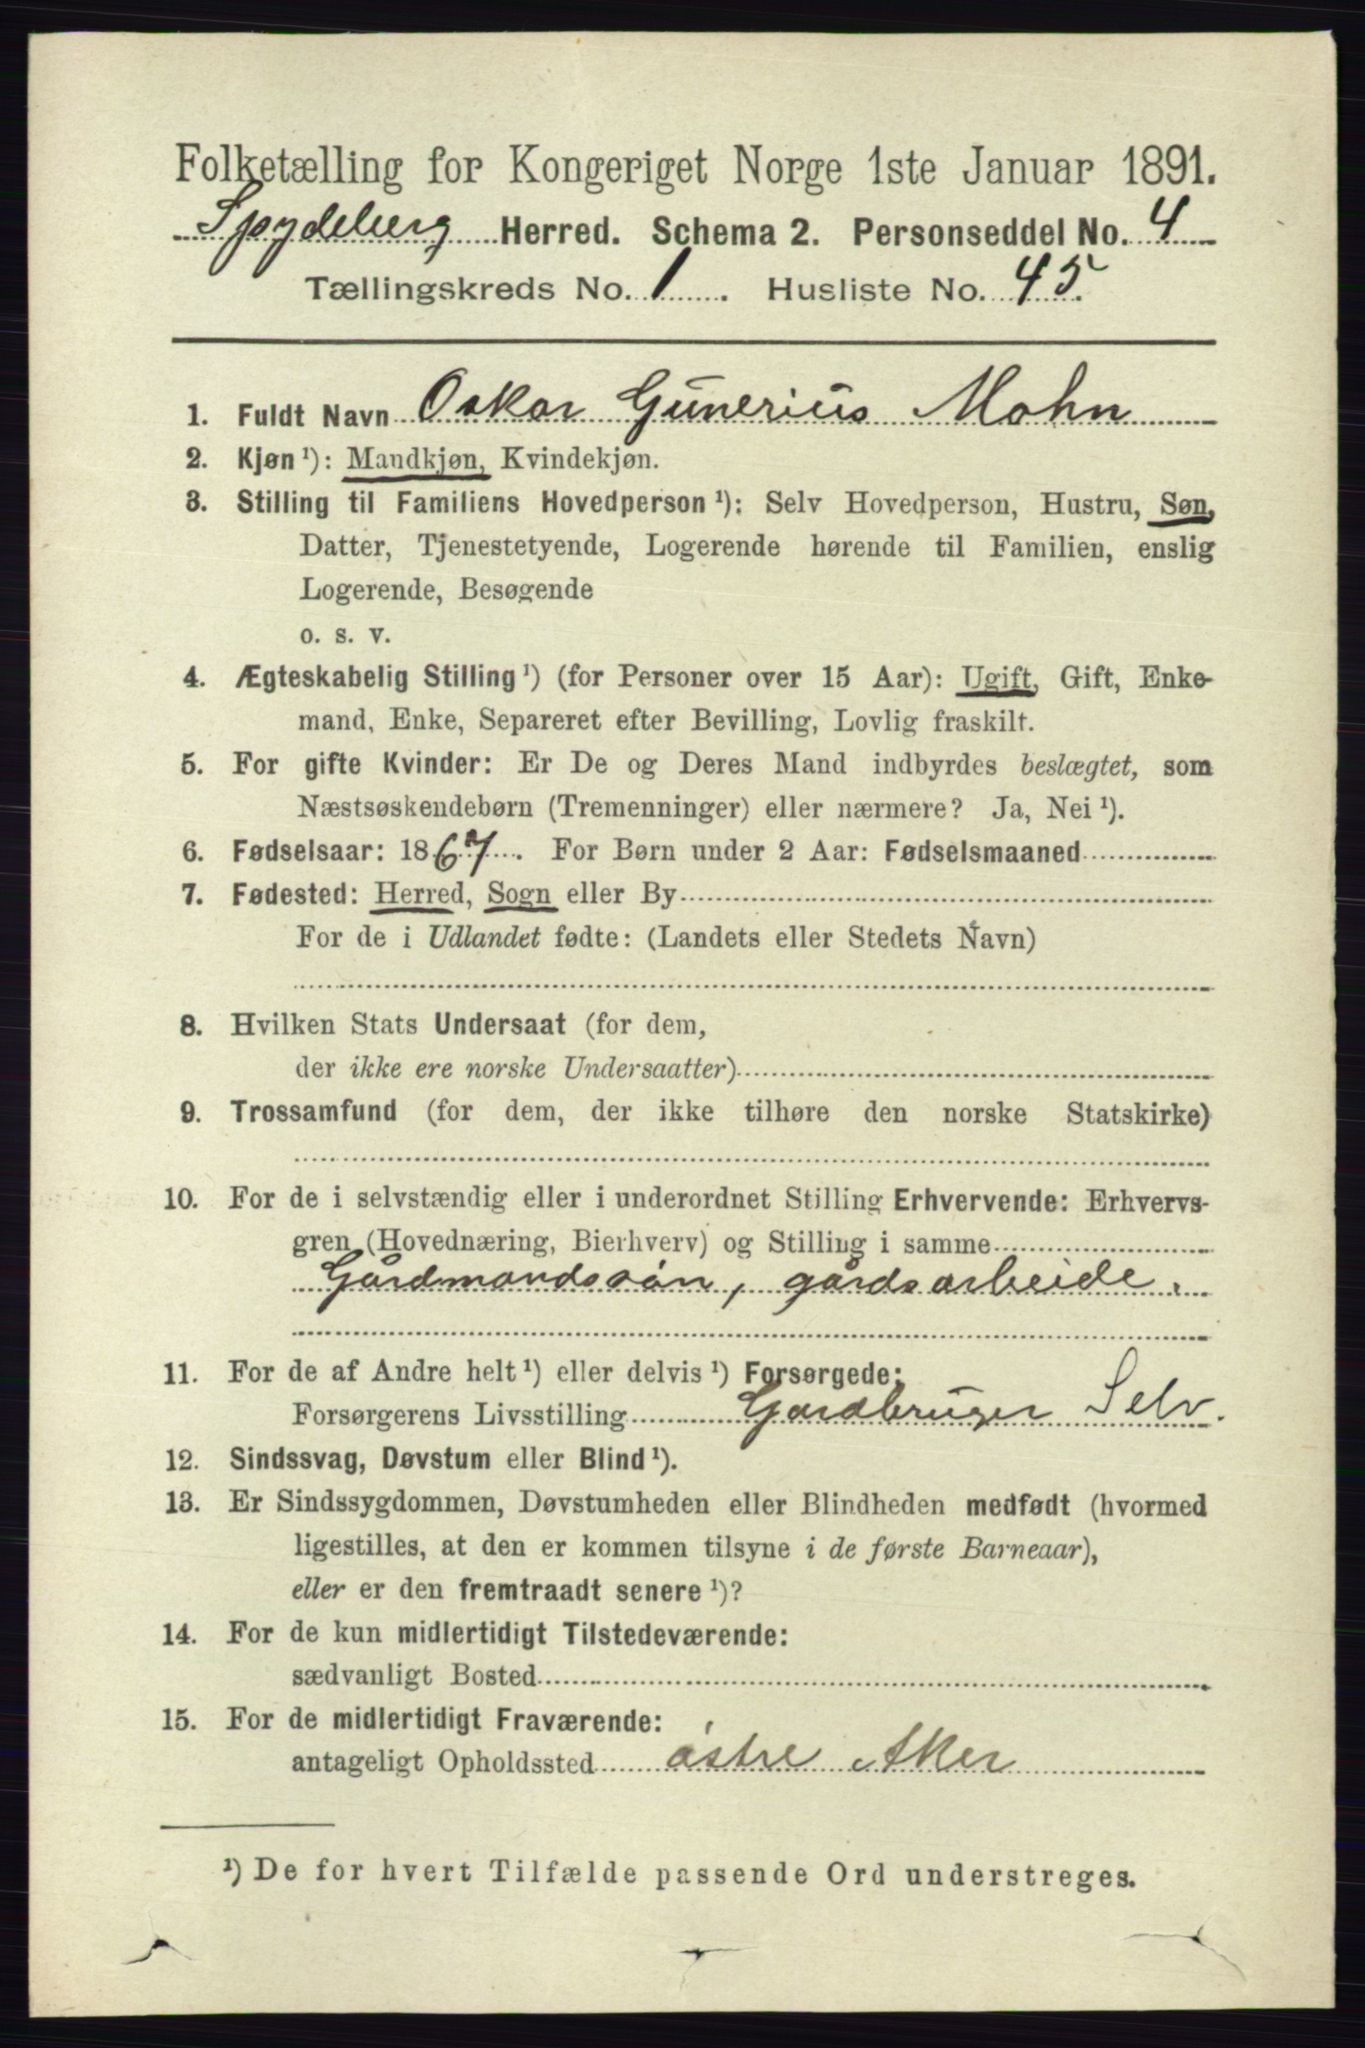 Folketælling for Kongeriget Norge 1ste Januar 1891.
Spydeberg Herred. Schema 2. Personseddel No. 4
Tællingskreds No. 1. Husliste No. 45.
1. Fuldt Navn Oskar Gunerius Mohn
2. Kjøn ¹): Mandkjøn, Kvindekjøn.
3. Stilling til Familiens Hovedperson ¹): Selv Hovedperson, Hustru, Søn,
Datter, Tjenestetyende, Logerende hørende til Familien, enslig
Logerende, Besøgende
o. s. v.
4. Ægteskabelig Stilling ¹) (for Personer over 15 Aar): Ugift, Gift, Enke-
mand, Enke, Separeret efter Bevilling, Lovlig fraskilt.
5. For gifte Kvinder: Er De og Deres Mand indbyrdes beslægtet, som
Næstsøskendebørn (Tremenninger) eller nærmere? Ja, Nei ¹).
6. Fødselsaar: 1867. For Børn under 2 Aar: Fødselsmaaned
7. Fødested: Herred, Sogn eller By
For de i Udlandet fødte: (Landets eller Stedets Navn)
8. Hvilken Stats Undersaat (for dem,
der ikke ere norske Undersaatter)
9. Trossamfund (for dem, der ikke tilhøre den norske Statskirke)
10. For de i selvstændig eller i underordnet Stilling Erhvervende: Erhvervs-
gren (Hovednæring, Bierhverv) og Stilling i samme
Gårdmandssøn, gårdsarbeide.
11. For de af Andre helt ¹) eller delvis ¹) Forsørgede:
Forsørgerens Livsstilling Gardbruger Selv.
12. Sindssvag, Døvstum eller Blind ¹).
13. Er Sindssygdommen, Døvstumheden eller Blindheden medfødt (hvormed
ligestilles, at den er kommen tilsyne i de første Barneaar),
eller er den fremtraadt senere ¹)?
14. For de kun midlertidigt Tilstedeværende:
sædvanligt Bosted
15. For de midlertidigt Fraværende:
antageligt Opholdssted østre Aker
¹) De for hvert Tilfælde passende Ord understreges.